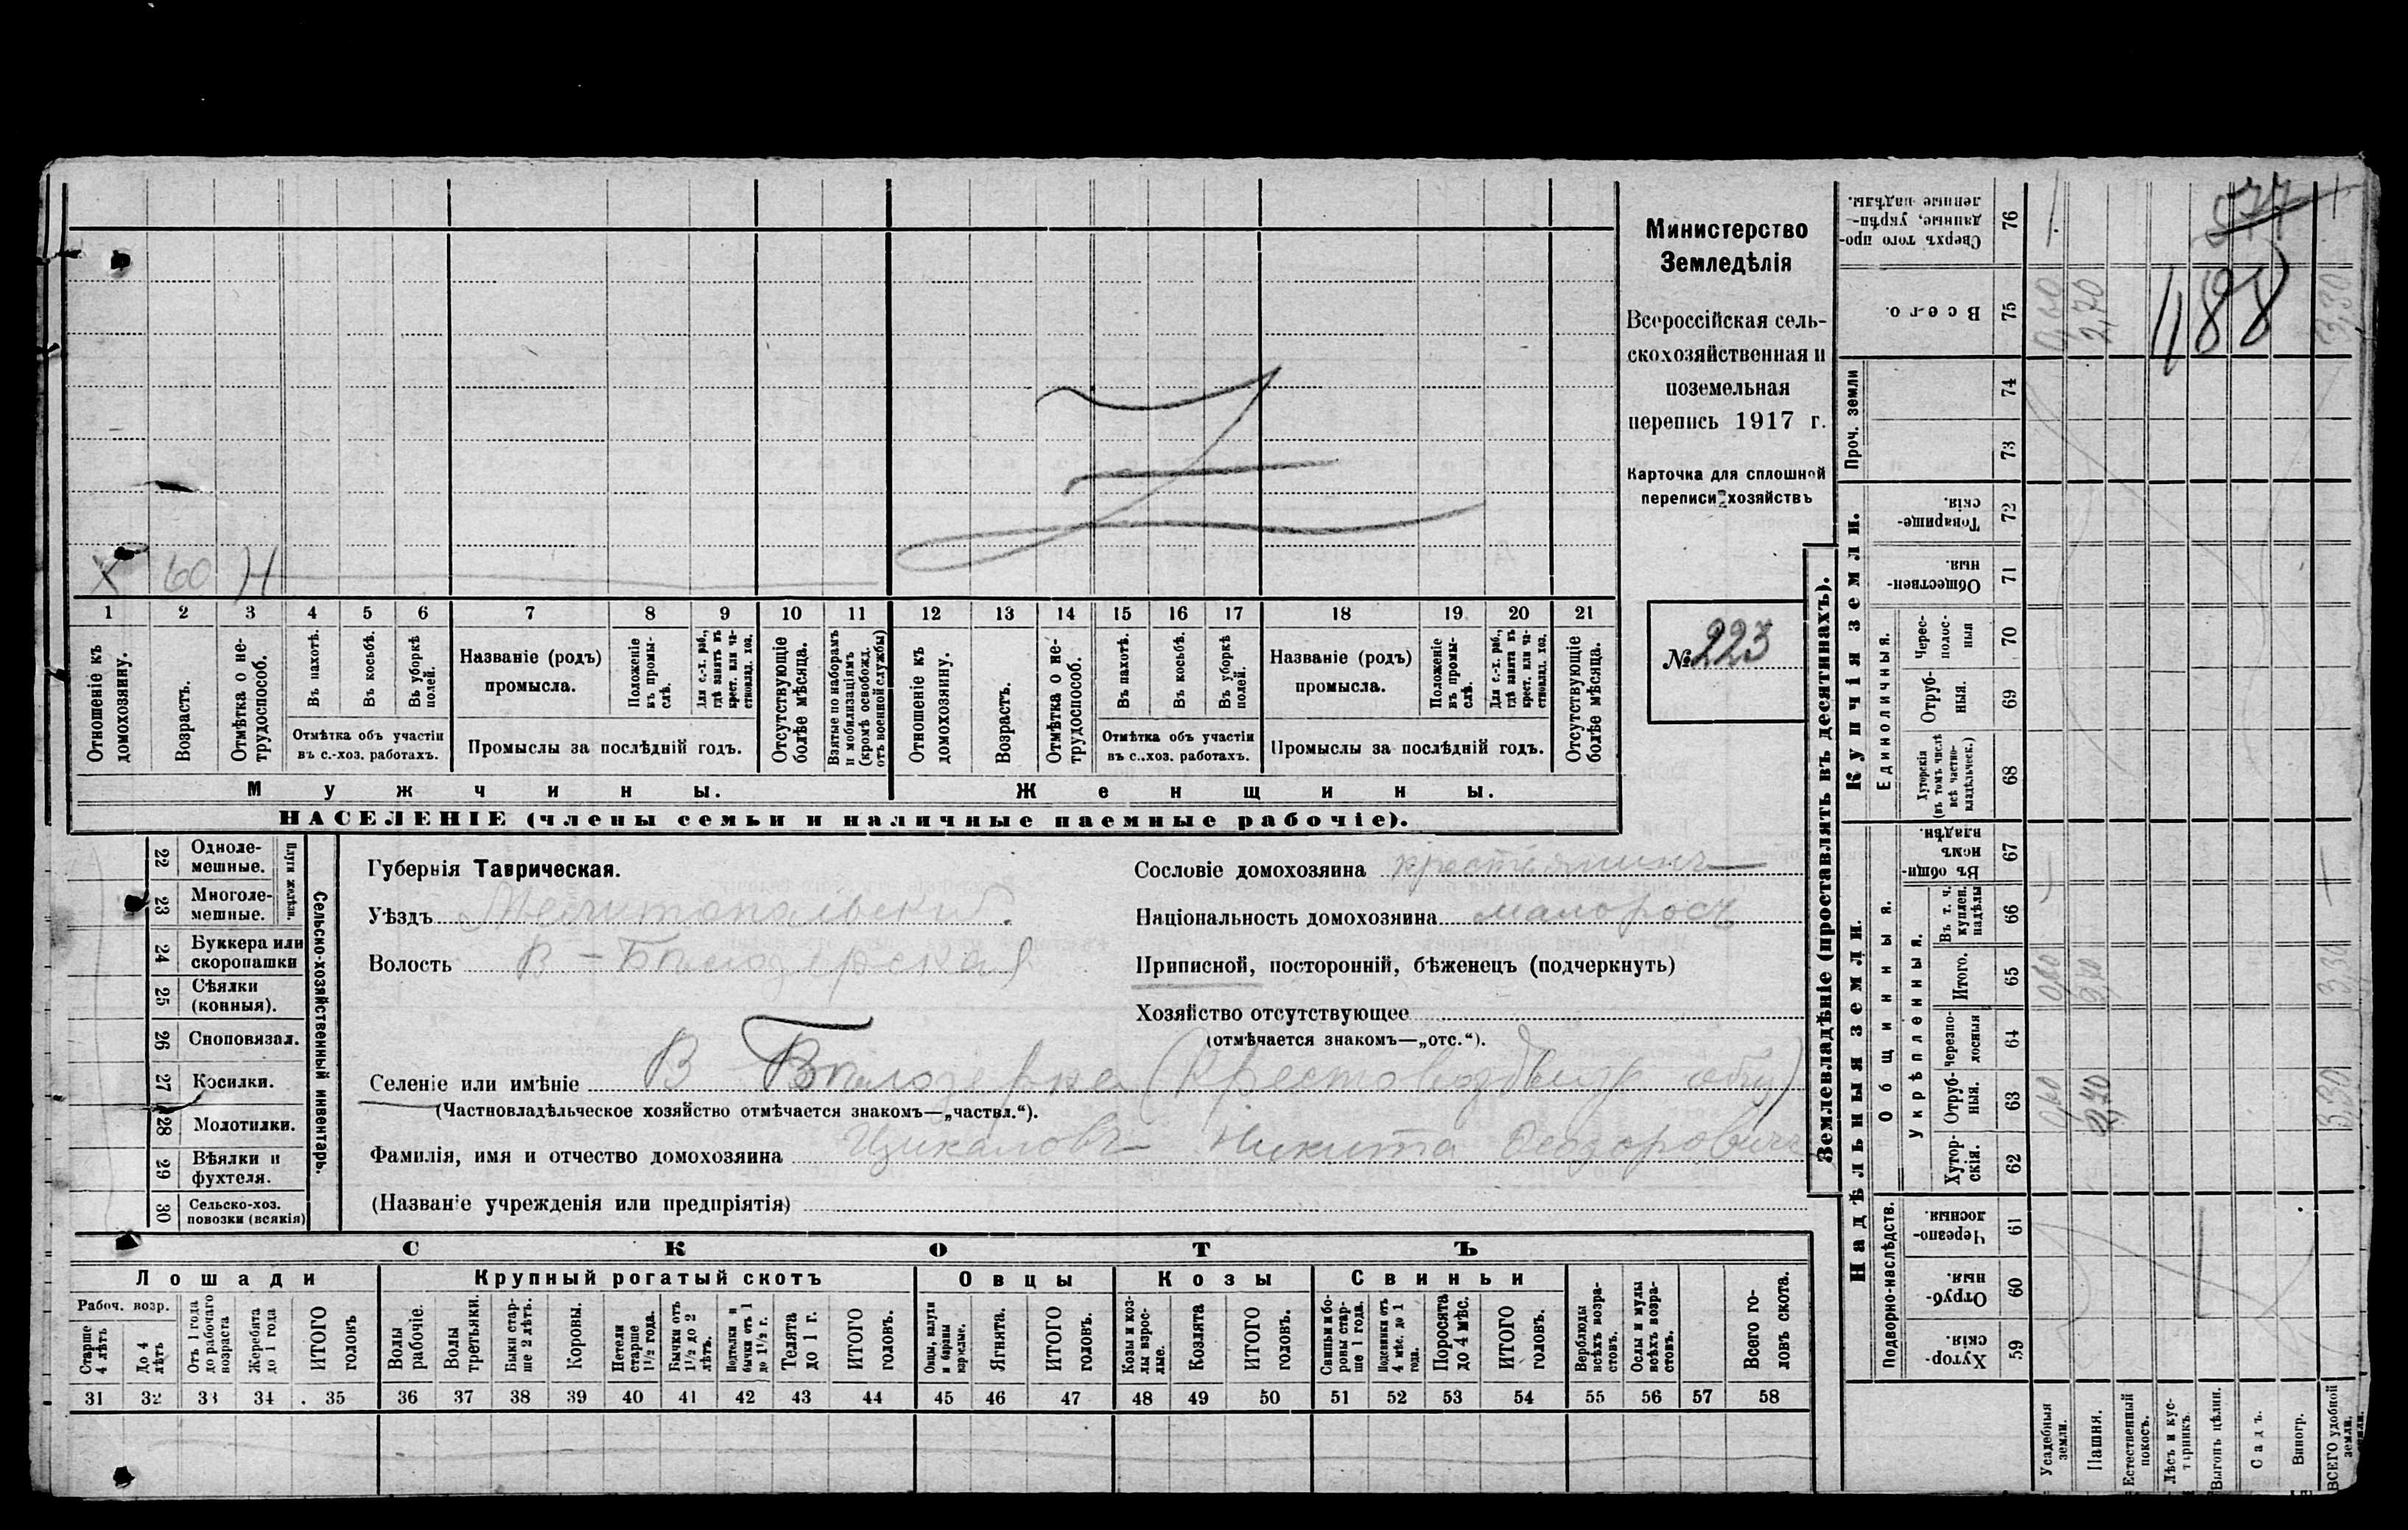 Х 60 Н
1 2 3 4 5 6 7 8 9 10 11 12 13 14 15 16 17 18 19 20 21
Отношеніе къ домохозяину.
Возрастъ.
Отмѣтка о не-
трудоспособ.
Въ пахотѣ.
Въ косьбѣ.
Въ уборкѣ полей.
Отмѣтка объ участіи
въ с.-хоз. работахъ.
Названіе (родъ)
промысла.
Положеніе
въ промы-
слѣ.
Для с.-х. раб.,
гдѣ занятъ въ
крест. или ча-
стновлад. хоз.
Промыслы за послѣдній годъ.
Отсутствующіе
болѣе мѣсяца.
Взятые по наборамъ
и мобилизаціямъ
(кромѣ освобожд.
отъ военной службы)
Отношеніе къ
домохозяину.
Возрастъ.
Отмѣтка о не-
трудоспособ.
Въ пахотѣ.
Въ косьбѣ.
Въ уборкѣ
полей.
Отмѣтка объ участіи
въ с..хоз. работахъ.
Названіе (родъ)
промысла.
Положеніе
въ промы-
слѣ.
Для с.-х. раб.,
гдѣ занята въ
крест. или ча-
стновлад. хоз.
Промыслы за послѣдній годъ.
Отсутствующіе
болѣе мѣсяца.
Мужчины.
Женщины.
НАСЕЛЕНІЕ (члены семьи и наличные наемные рабочіе).
Министерство
Земледѣлія
Всероссійская сель-
скохозяйственная и
поземельная
перепись 1917 г.
Карточка для сплошной
переписи хозяйствъ
№ 223
22 Одноле-
мешные.
23 Многоле-
мешные.
Плуги желѣзн.
24 Буккера или
скоропашки
25 Сѣялки
(конныя).
26 Сноповязал.
27 Косилки.
28 Молотилки.
29 Вѣялки и
фухтеля.
30 Сельско-хоз.
повозки (всякія)
Сельско-хозяйственный инвентарь.
Губернія Таврическая.
Уѣздъ Мелитопольскій.
Волость В-Бѣлозерская
Сословіе домохозяина крестьянинъ
Національность домохозяина малороссъ
Приписной, посторонній, бѣженецъ (подчеркнуть)
Хозяйство отсутствующее
(отмѣчается знакомъ—„отс.“).
Селеніе или имѣніе В Бѣлозерка (Крестовоздвиж общ)
(Частновладѣльческое хозяйство отмѣчается знакомъ—„частвл.“).
Фамилія, имя и отчество домохозяина Цикаловъ Никита Феодоровичъ
(Названіе учрежденія или предпріятія)
СКОТЪ
Лошади
Крупный рогатый скотъ
Овцы
Козы
Свиньи
Рабоч. возр.
Старше
4 лѣтъ
До 4
лѣтъ
Отъ 1 года
до рабочаго
возраста
Жеребята
до 1 года
ИТОГО
головъ
Волы
рабочіе.
Волы
третьяки.
Быки стар-
ше 2 лѣтъ.
Коровы.
Нетели
старше
1½ года.
Бычки отъ
1½ до 2
лѣтъ.
Подтелки и
бычки отъ 1
до 1½ г.
Телята
до 1 г.
ИТОГО
головъ.
Овцы, валухи
и бараны
взрослые.
Ягнята.
ИТОГО
головъ.
Козы и коз-
лы взрос-
лые.
Козлята
ИТОГО
головъ.
Свиньи и бо-
ровы стар-
ше 1 года.
Подсвинки отъ
4 мѣс. до 1
года.
Поросята
до 4 мѣс.
ИТОГО
головъ.
Верблюды
всѣхъ возра-
стовъ.
Ослы и мулы
всѣхъ возра-
стовъ.
Всего го-
ловъ скота.
31 32 33 34 35 36 37 38 39 40 41 42 43 44 45 46 47 48 49 50 51 52 53 54 55 56 57 58
Землевладѣніе (проставлять въ десятинахъ).
Надѣльныя земли.
Купчія земли.
Проч. земли
Подворно-наслѣдств.
Общинныя.
Укрѣпленныя.
Единоличныя.
Хутор-
скія. 59
Отруб-
ныя. 60
Черезпо-
лосныя. 61
Хутор-
скія. 62
Отруб-
ныя. 63
Черезпо-
лосныя 64
Итого. 65
Въ т. ч.
куплен.
надѣлы 66
Въ общи-
номъ
владѣн. 67
Хуторскія
(въ томъ числѣ
всѣ частно-
владѣльческ.) 68
Отруб-
ныя. 69
Черес-
полос-
ныя 70
Обществен-
ныя. 71
Товарище-
скія. 72
73
74
Всего. 75
Сверхъ того про-
данные, укрѣп-
ленные надѣлы. 76
Усадебныя
земли.
0,60 0,60 0,60
Пашня.
2,70 2,70 2,70
Естественный
покосъ.
Лѣсъ и кус-
тарникъ.
Выгонъ цѣлин.
Садъ.
Виногр.
ВСЕГО удобной
земли.
3,30 3,30 3,30
577
188